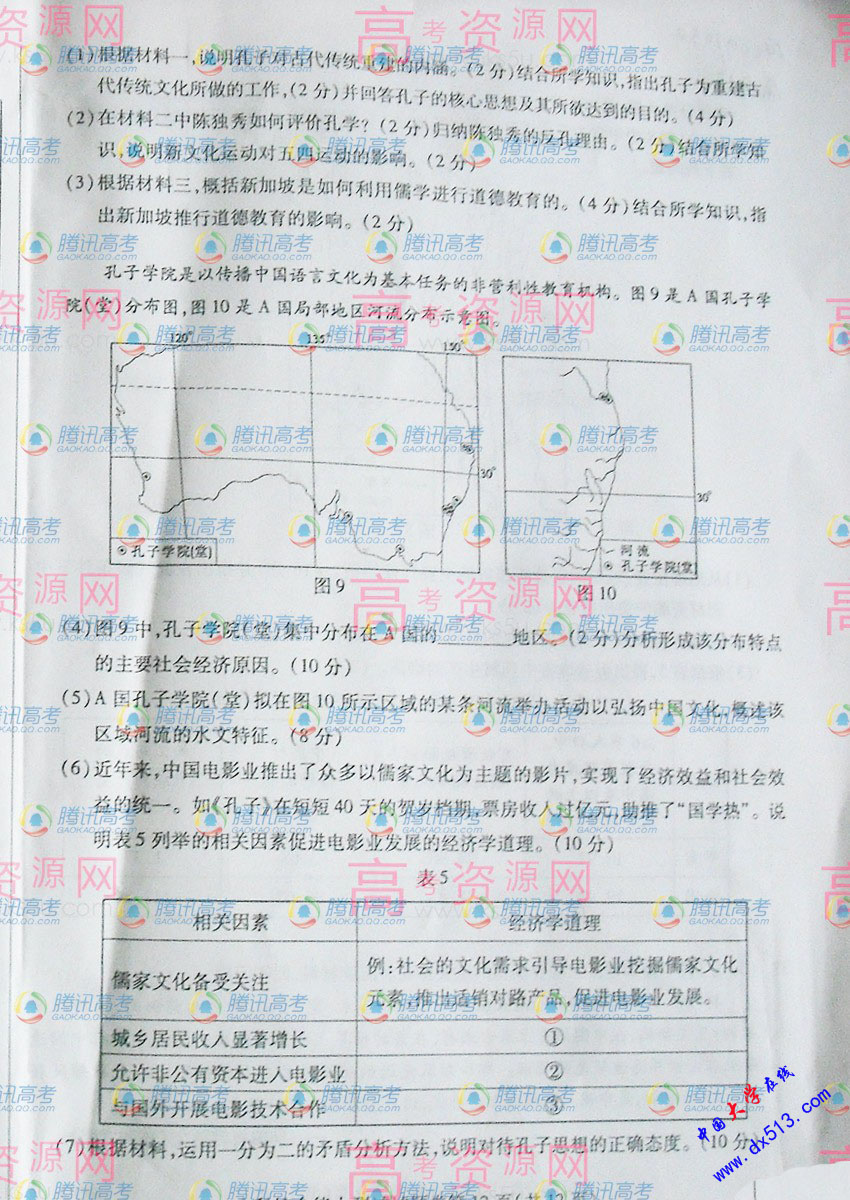 (1)根据材料一,说明孔子对古代传统重建的内涵。(2分)结合所学知识,指出孔子为重建古
代传统文化所做的工作,(2分)并回答孔子的核心思想及其所欲达到的目的。(4分)
(2)在材料二中陈独秀如何评价孔学?(2分)归纳陈独秀的反孔理由。(2分)结合所学知
识,说明新文化运动对五四运动的影响。(2分)
(3)根据材料三,概括新加坡是如何利用儒学进行道德教育的。(4分)结合所学知识,指
出新加坡推行道德教育的影响。(2分)
孔子学院是以传播中国语言文化为基本任务的非营利性教育机构。图9是A国孔子学
院(堂)分布图,图10是A国局部地区河流分布示意图。
120° 135° 150°
30° 30°
孔子学院(堂)
河流
孔子学院(堂)
图9 图10
(4)图9中,孔子学院(堂)集中分布在A国的________地区。(2分)分析形成该分布特点
的主要社会经济原因。(10分)
(5)A国孔子学院(堂)拟在图10所示区域的某条河流举办活动以弘扬中国文化,概述该
区域河流的水文特征。(8分)
(6)近年来,中国电影业推出了众多以儒家文化为主题的影片,实现了经济效益和社会效
益的统一。如《孔子》在短短40天的贺岁档期,票房收入过亿元,助推了“国学热”。说
明表5列举的相关因素促进电影业发展的经济学道理。(10分)
表5
相关因素 经济学道理
儒家文化备受关注 例:社会的文化需求引导电影业挖掘儒家文化
元素,推出适销对路产品,促进电影业发展。
城乡居民收入显著增长 ①
允许非公有资本进入电影业 ②
与国外开展电影技术合作 ③
(7)根据材料,运用一分为二的矛盾分析方法,说明对待孔子思想的正确态度。(10分)
中国大学在线
www.dx513.com
高考资源网
腾讯高考
GAOKAO.QQ.COM